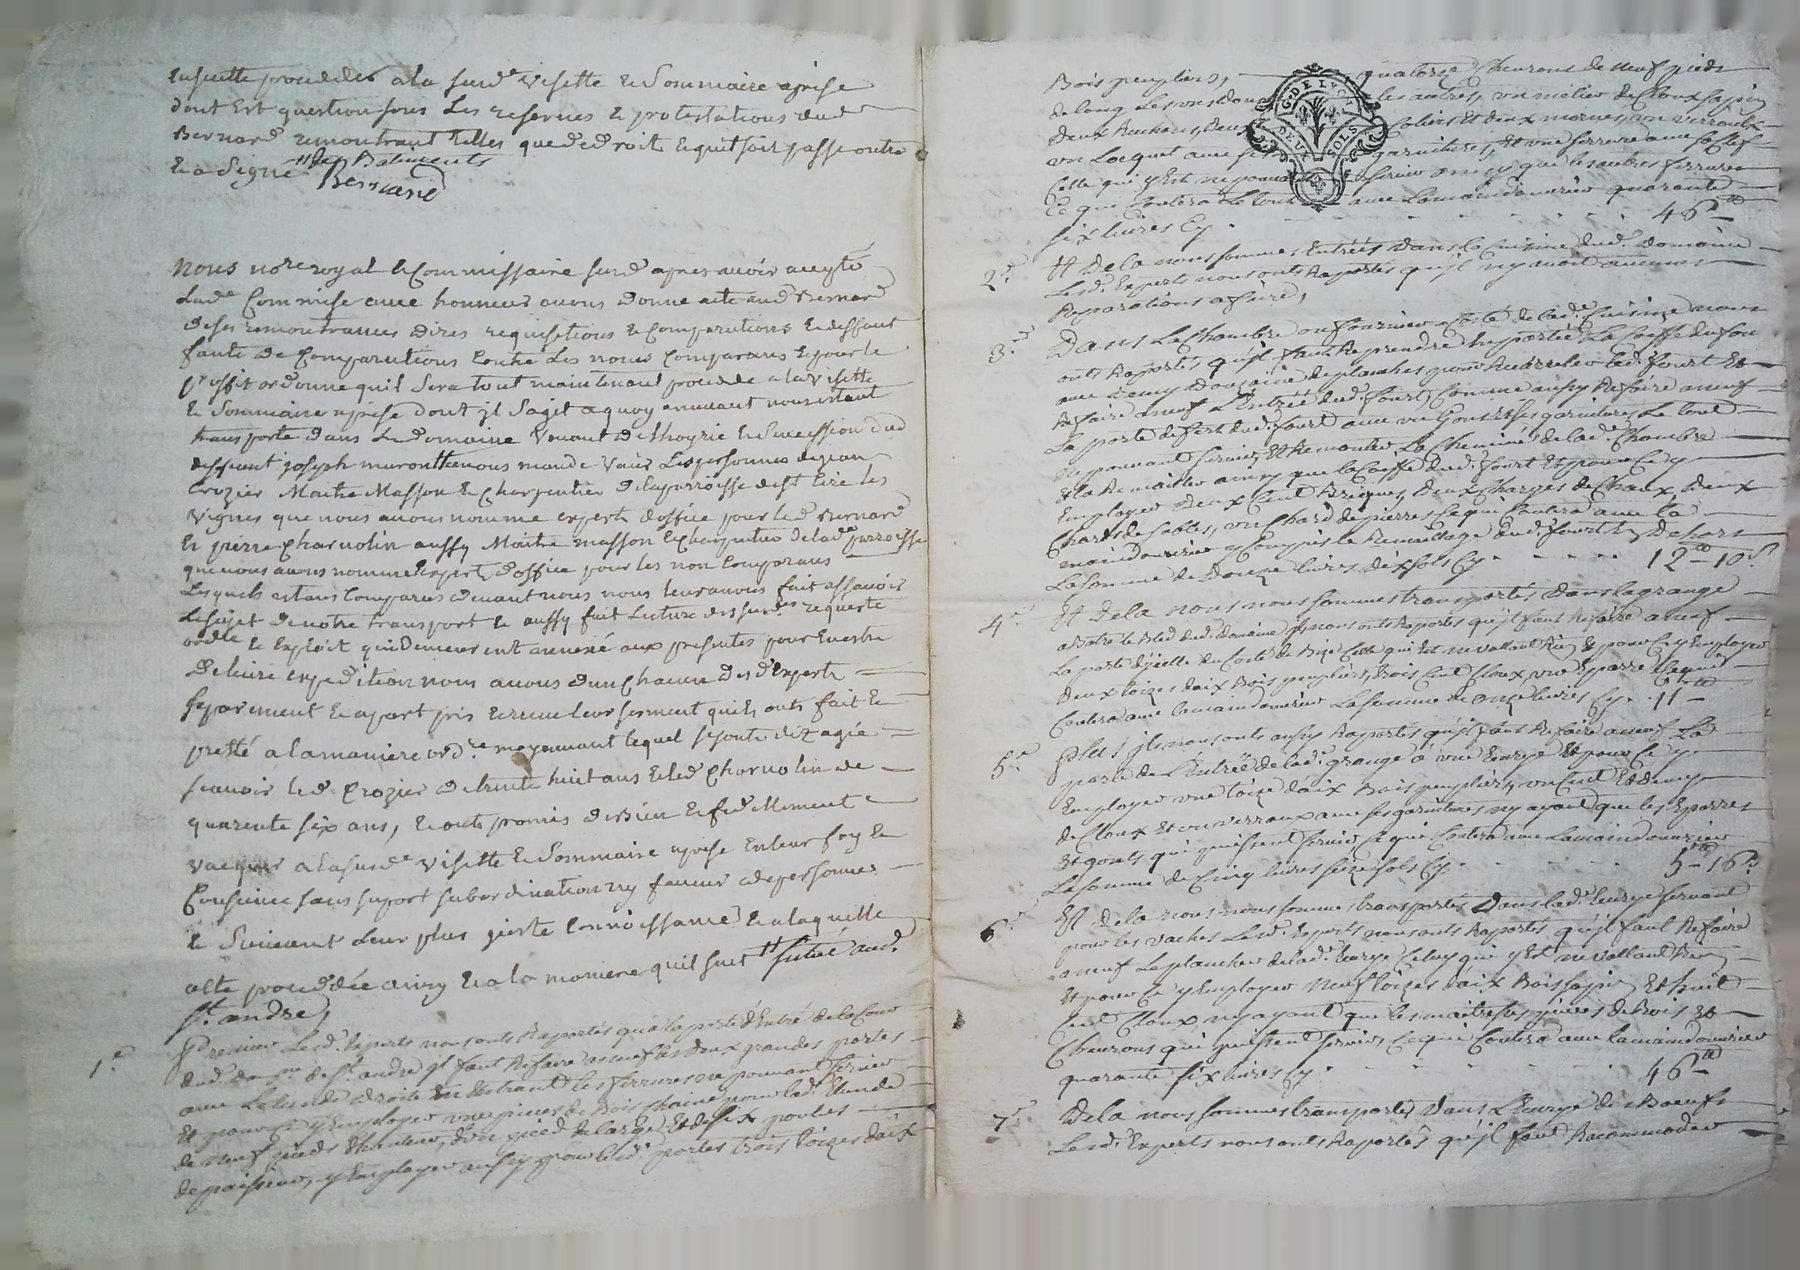 Ensuitte proceder a la surd.e visitte & Sommaire aprise
dont Est question sous Les reserves & protestations dud
Bernard remontrant telles que de droit & quil soit passe outre
& a Signé // des Batiments
Bernard
Nous no.re royal & Commissaire surd. apres avoir accepté
Lad.e Commise avec honneur avons donne acte aud Bernard
de ses remontrances dires requisitions & Comparutions & deffaut
faute de Comparutions Contre Les nons Comparans & pour le
proffit ordonne quil Sera tout maintenant procedde a la visitte
& Sommaire aprise dont jl Sagit a quoy avenant nous estant
transporte dans Le domaine venant de & Succession dud
deffunt joseph avons mande venir Les personnes de jean
Crozier Maitre Masson & Charpentier de la parroisse de S.t Cire les
Vignes que nous avons nomme expert d'office pour led Bernard
Et pierre Charvolin aussy Maitre masson & Charpentier de lad.e parroisse
que nous avons nomme Expert d'office pour les non Comparans
Lesquels estans Comparus devant nous nous leur avons fait assavoir
Le sujet de notre transport & aussy fait Lecture des surd.es requeste
ord.ce & Exploit qui demeureront annexé aux presentes pour En estre
delivré expedition nous avons d'un Chacun desd Experts
separement & apart pris & receu leur serment quils onts fait &
presté a la maniere ord.re moyennant lequel se sonts dit agée
scavoir led Crozier de trente huit ans & led Charvolin de
quarente six ans, & onts promis de Bien & fidellement
vacquer a la surd.e visitte & Sommaire aprise En leur foy &
Consience sans suport subordination ny faveur de personnes
& Suivant Leur plus juste Connoissance & a laquelle
a été proceddée ainsy & a la maniere quil suit // situé aud.
S.t andré,
1.e Premier Lesd. Experts nous onts Raportés qu'a la porte d'Entré de la Cour
dud. dom.ne de S.t andré jl faut Refaire a neuf les deux grandes portes
avec La bende a droite En Entrant les ferrures ne pouvant servir
Et pour ce y Employer une piece de Bois Chaine pour lad. Bende
de neuf pieds d'hauteur, d'un pied de large Et de six pouces
de paisseur, y Employer aussy pour lesd. portes trois toizes daix
Bois peupliers, quatorze Chevrons de neuf pieds
de long Les uns dans les autres, un millier de Cloux sapin
deux Colliers Et deux un verroux
un Loquet avec ses garnitures, Et une serrure avec sa Clef
Celle qui y Est ne pouvant servir ainsy que les autres ferrures
Ce qui Coutera Le tout avec La main d'ouvrier quarante
six livres Cy . . . 46.tt
2.e Et de la nous sommes Entrés dans la Cuisine dud. domaine
Lesd. Experts nous onts Raportés qu'jl ny avoit aucunes
Reparations a faire,
3.e Dans La Chambre ou fournier a Coté de lad. Cuisine nous
onts Raportés qu'jl faut Reprendre En partie La Coeffe du four
avec demy douzaine de planches pour led. fourt Et
Refaire a neuf L'Entrée dud. fourt, Comme aussy Refaire a neuf
La porte de fert dud. fourt avec un Gons Et ses garnitures Le tout
ne pouvant servir, Et Remonter La Cheminée de lad. Chambre
Et la Remailler ainsy que la Coeffe dud. fourt Et pour Ce y
Employer deux Cent Briques, deux Charges de Chaux, deux
Chards de Sables, un Chard de pierres Ce qui Coutera avec la
main d'ouvrier y Compris le Remaillage dud. fourt En dehors
La somme de douze livres dix sols Cy . . . 12.tt 10.s
4.e Et de la nous nous sommes transportés dans la grange
a battre le Bled dud. domaine jls nous onts Raportés qu'jl faut Refaire a neuf
La porte du Coté de Bize Celle qui Est ne vallant Rien Et pour Ce y Employer
deux toizes daix Bois peupliers, trois Cent Cloux, une
Coutera avec la main d'ouvrier La somme de onze livres Cy . 11.tt
5.e Plus jls nous onts aussy Raportés qu'jl faut Refaire a neuf La
porte de L'Entrée de lad. grange a une Eurye Et pour Ce y
Employer une toize daix Bois peupliers, un Cent Et demy
de Cloux Et un verroux avec ses garnitures ny ayant que les Eparres
Et gonts qui puissent servir, Ce qui Coutera avec La main d'ouvrier
La somme de Cinq livres seize sols Cy . . . 5.tt 16.s
6.e Et de la nous nous sommes transportés dans lad. Eurye servant
pour les vaches Lesd. Experts nous onts Raportés qu'jl faut Refaire
a neuf Le plancher de lad. Eurye Celuy qui y Est ne vallant Rien
Et pour Ce y Employer neuf toizes daix Bois sapin, Et huit
Cent Cloux, ny ayant que les maitresses pieces de Bois Et
Chevrons qui puissent servir, Ce qui Coutera avec la main d'ouvrier
quarante six livres Cy . . . 46.tt
7.e De la nous sommes transportés dans L'Eurye des Boeufs
Lesd. Experts nous onts Raportés qu'jl faut Racommoder
G. DE LYON
DEUX SOLS